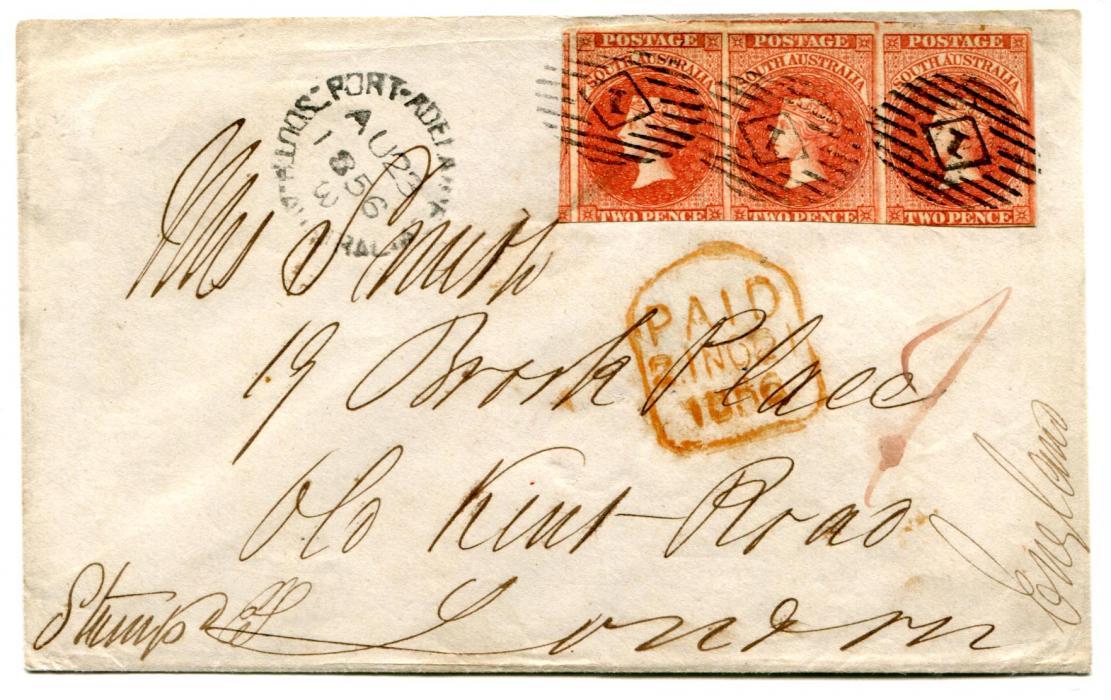 PORT-ADELAIDE SOUTH AUSTRALIA
AU 23
1856
POSTAGE POSTAGE POSTAGE
SOUTH AUSTRALIA SOUTH AUSTRALIA SOUTH AUSTRALIA
1 1 1
TWO PENCE TWO PENCE TWO PENCE
Mrs Smith
PAID
NO 2
1856
19 Brook Place
Old Kent Road
London
England
Stamps